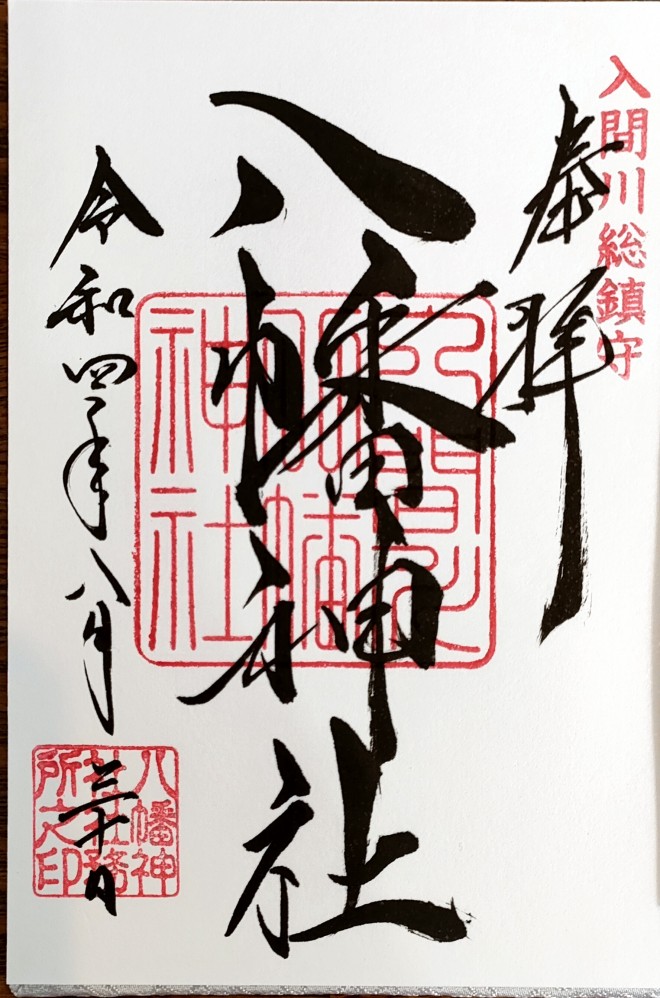 入間川総鎮守
奉拝
八幡神社
令和四年八月
三十日
八幡神
社社務
所之印